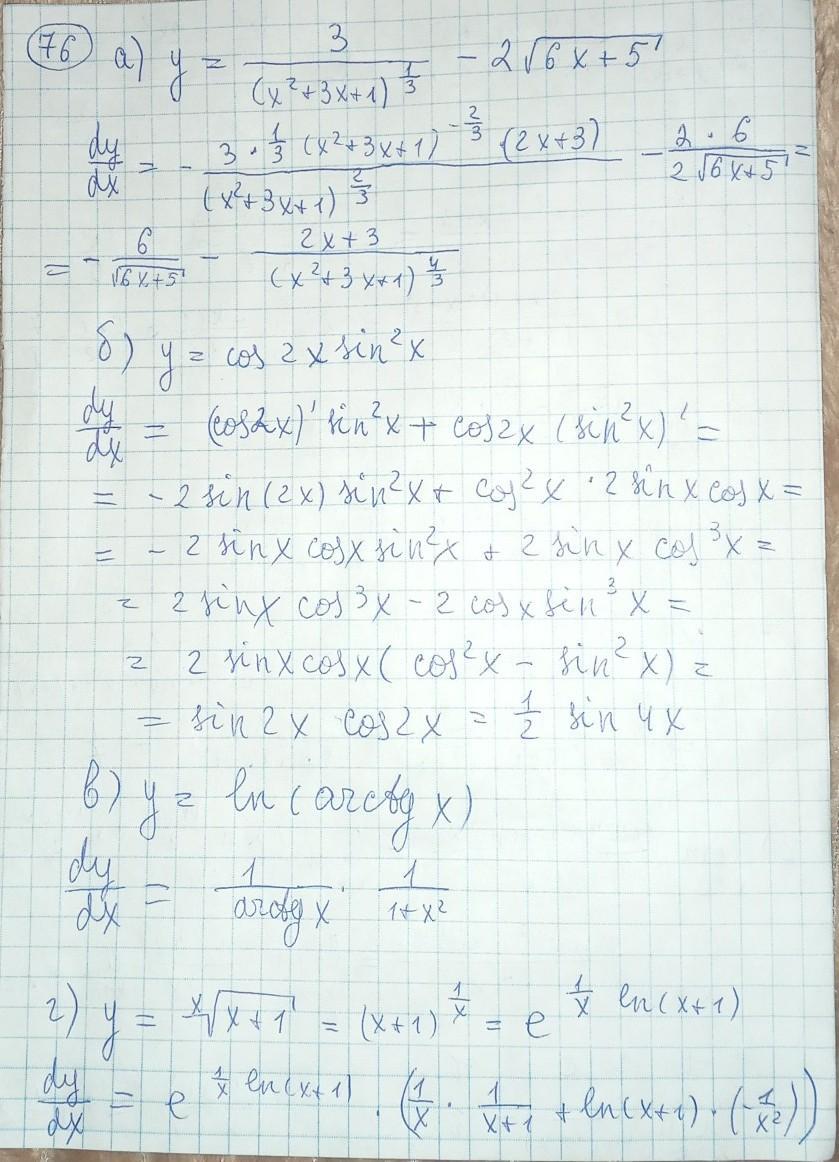 76 а) y = 3/(x²+3x+1)^(1/3) - 2√(6x+5)
dy/dx = - (3·1/3 (x²+3x+1)^(-2/3) (2x+3))/(x²+3x+1)^(2/3) - (2·6)/(2√(6x+5)) =
= - 6/√(6x+5) - (2x+3)/(x²+3x+1)^(4/3)
б) y = cos 2x sin²x
dy/dx = (cos2x)' sin²x + cos2x (sin²x)' =
= -2 sin(2x) sin²x + cos²x · 2 sin x cos x =
= -2 sinx cosx sin²x + 2 sin x cos³x =
= 2 sinx cos³x - 2 cosx sin³x =
= 2 sinx cosx ( cos²x - sin²x) =
= sin2x cos2x = 1/2 sin 4x
в) y = ln (arctg x)
dy/dx = 1/(arctg x) · 1/(1+x²)
г) y = ˣ√(x+1) = (x+1)^(1/x) = e^(1/x ln(x+1))
dy/dx = e^(1/x ln(x+1)) · (1/x · 1/(x+1) + ln(x+1) · (-1/x²))